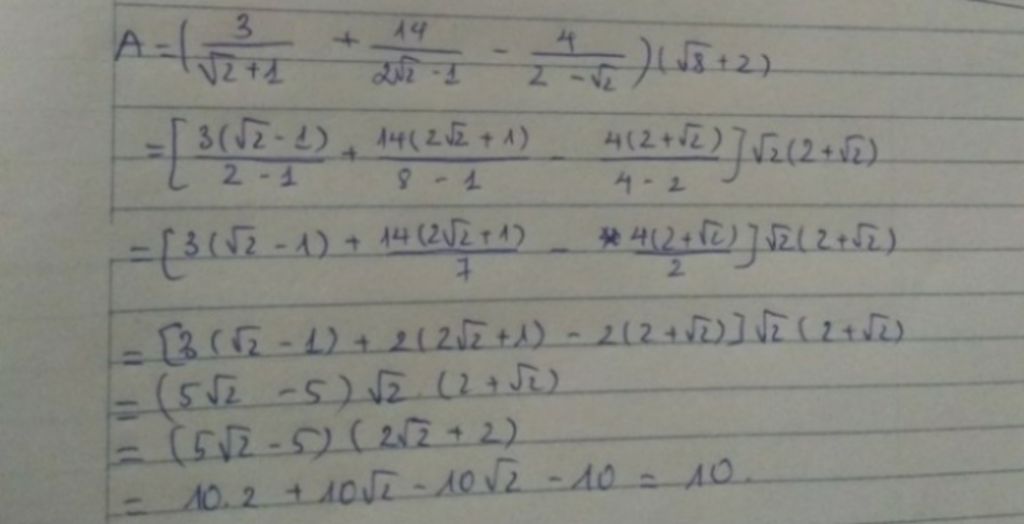 A = ( 3/(√2 + 1) + 14/(2√2 - 1) - 4/(2 - √2) ) (√8 + 2)
= [ 3(√2 - 1)/(2 - 1) + 14(2√2 + 1)/(8 - 1) - 4(2 + √2)/(4 - 2) ] √2(2 + √2)
= [ 3(√2 - 1) + 14(2√2 + 1)/7 - 4(2 + √2)/2 ] √2(2 + √2)
= [3(√2 - 1) + 2(2√2 + 1) - 2(2 + √2)] √2 (2 + √2)
= (5√2 - 5) √2 . (2 + √2)
= (5√2 - 5) (2√2 + 2)
= 10.2 + 10√2 - 10√2 - 10 = 10.